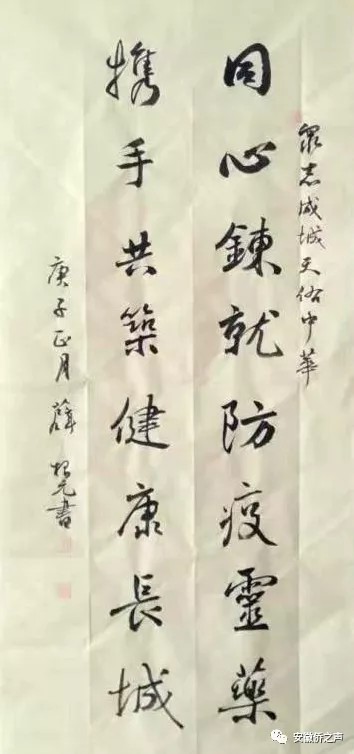 眾志成城天佑中華
同心鍊就防疫靈藥
攜手共築健康長城
庚子正月薛

安徽侨之声